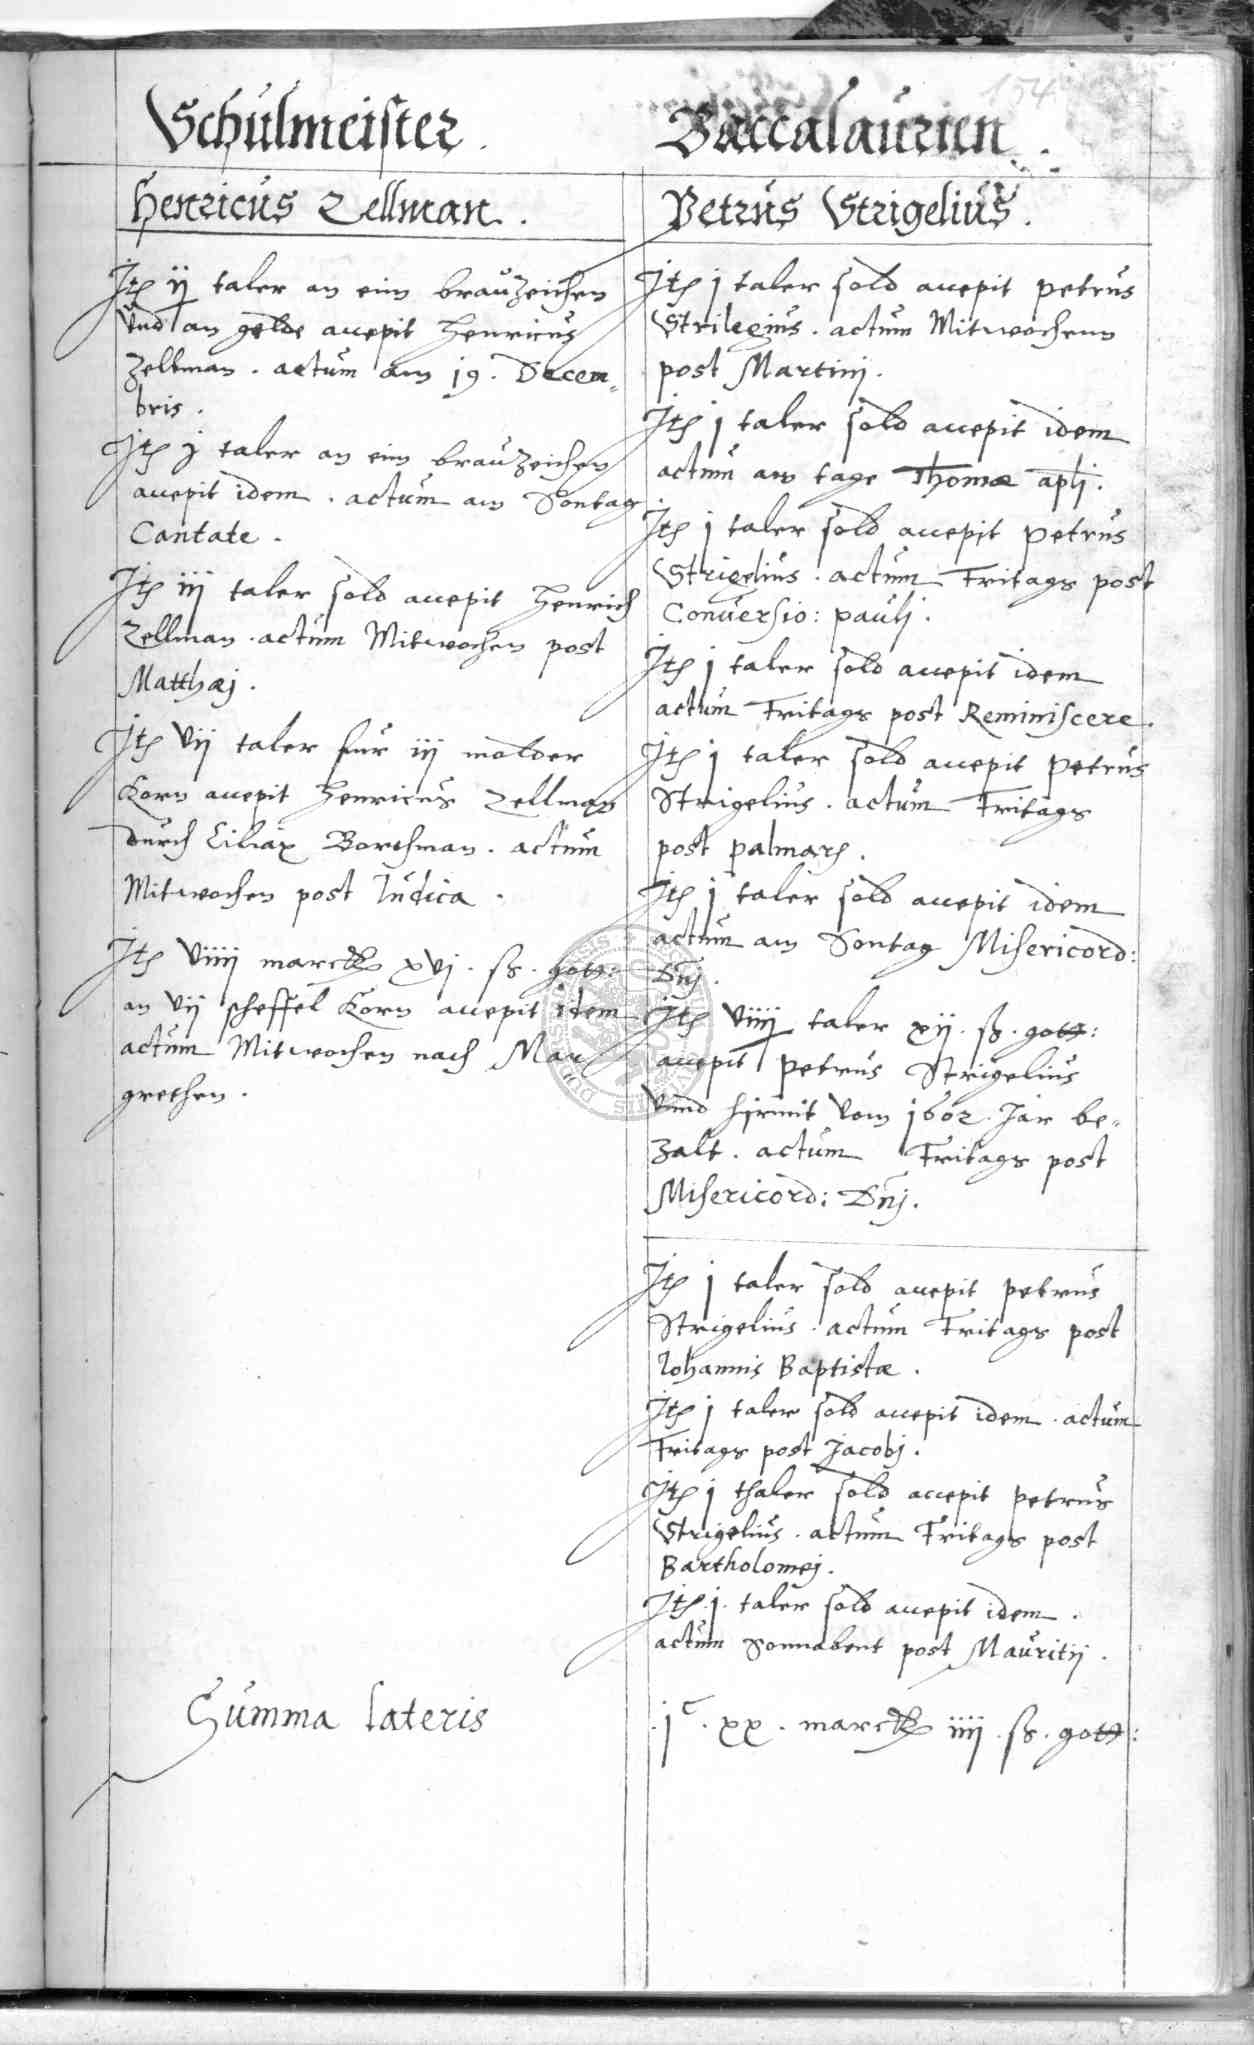 154
Schulmeister.
Henricus Zellman.
Jtem ij taler an eim brauzeichen
Vnd an gelde accepit Henricus
Zellman. actum am 19. Decem„
bris.
Jtem j taler an eim brauzeichen
accepit idem. actum am Sontag
Cantate.
Jtem iij taler sold accepit Henrich
Zellman. actum Mitwochen post
Matthæj.
Jtem vij taler fur iij molder
Korn accepit Henricus Zellman
durch Ciliax Borchman. actum
Mitwochen post Judica.
Jtem viiij marck xvj. ß. gott:
an vij scheffel Korn accepit idem
actum Mitwochen nach Mar„
grethen.
Summa lateris
Baccalaurien.
Petrus Strigelius.
Jtem j taler sold accepit Petrus
Strilegius. actum Mitwochenn
post Martinj.
Jtem j taler sold accepit idem
actum am tage Thomæ apli.
Jtem j taler sold accepit Petrus
Strigelius. actum Fritags post
Conversio: paulj.
Jtem j taler sold accepit idem
actum Fritags post Reminiscere.
Jtem j taler sold accepit Petrus
Strigelius. actum Fritags
post palmarum.
Jtem j taler sold accepit idem
actum am Sontag Misericord:
Dnj.
Jtem viiij taler xij. ß. gott:
accepit Petrus Strigelius
Vnd hirmit vom 1602. Jar be„
zalt. actum Fritags post
Misericord: Dnj.
Jtem j taler sold accepit petrus
Strigelius. actum Fritags post
Johannis Baptistæ.
Jtem j taler sold accepit idem. actum
Fritags post Jacobj.
Jtem j thaler sold accepit petrus
Strigelius. actum Fritags post
Bartholomej.
Jtem .j. taler sold accepit idem.
actum Sonnabent post Mauritij.
.j c. xx. marck iiij. ß. gott: